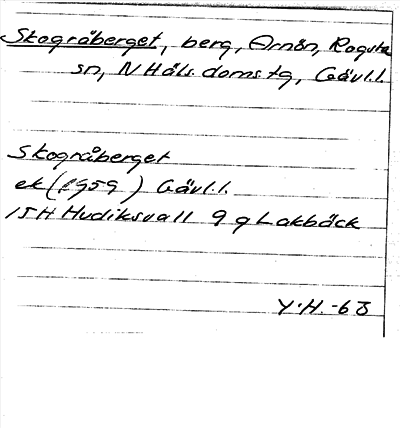 Skogråberget, berg, Arnön, Rogsta
sn, N Häls. doms. tg, Gävl.l.
Skogråberget
ek (1959) Gävl.l.
15H Hudiksvall 9 g Lakbäck
Y.H. -63